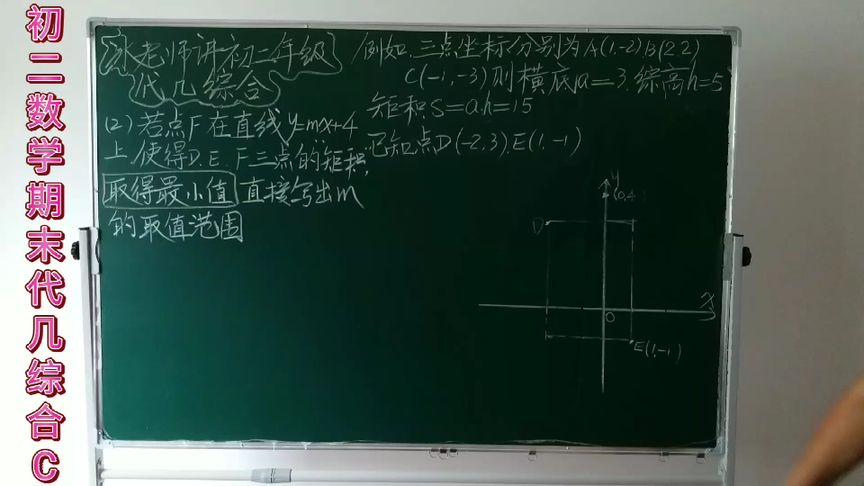 初二数学期末代几综合C
水老师讲初二年级
代几综合
例如.三点坐标分别为A(1,-2)B(2,2)
C(-1,-3)则横底a=3.综高h=5
矩积S=ah=15
(2)若点F在直线y=mx+4
上,使得D.E.F三点的矩积,
取得最小值 直接写出m
的取值范围
已知点D(-2,3).E(1,-1)
y
(0,4)
D
x
O
E(1,-1)